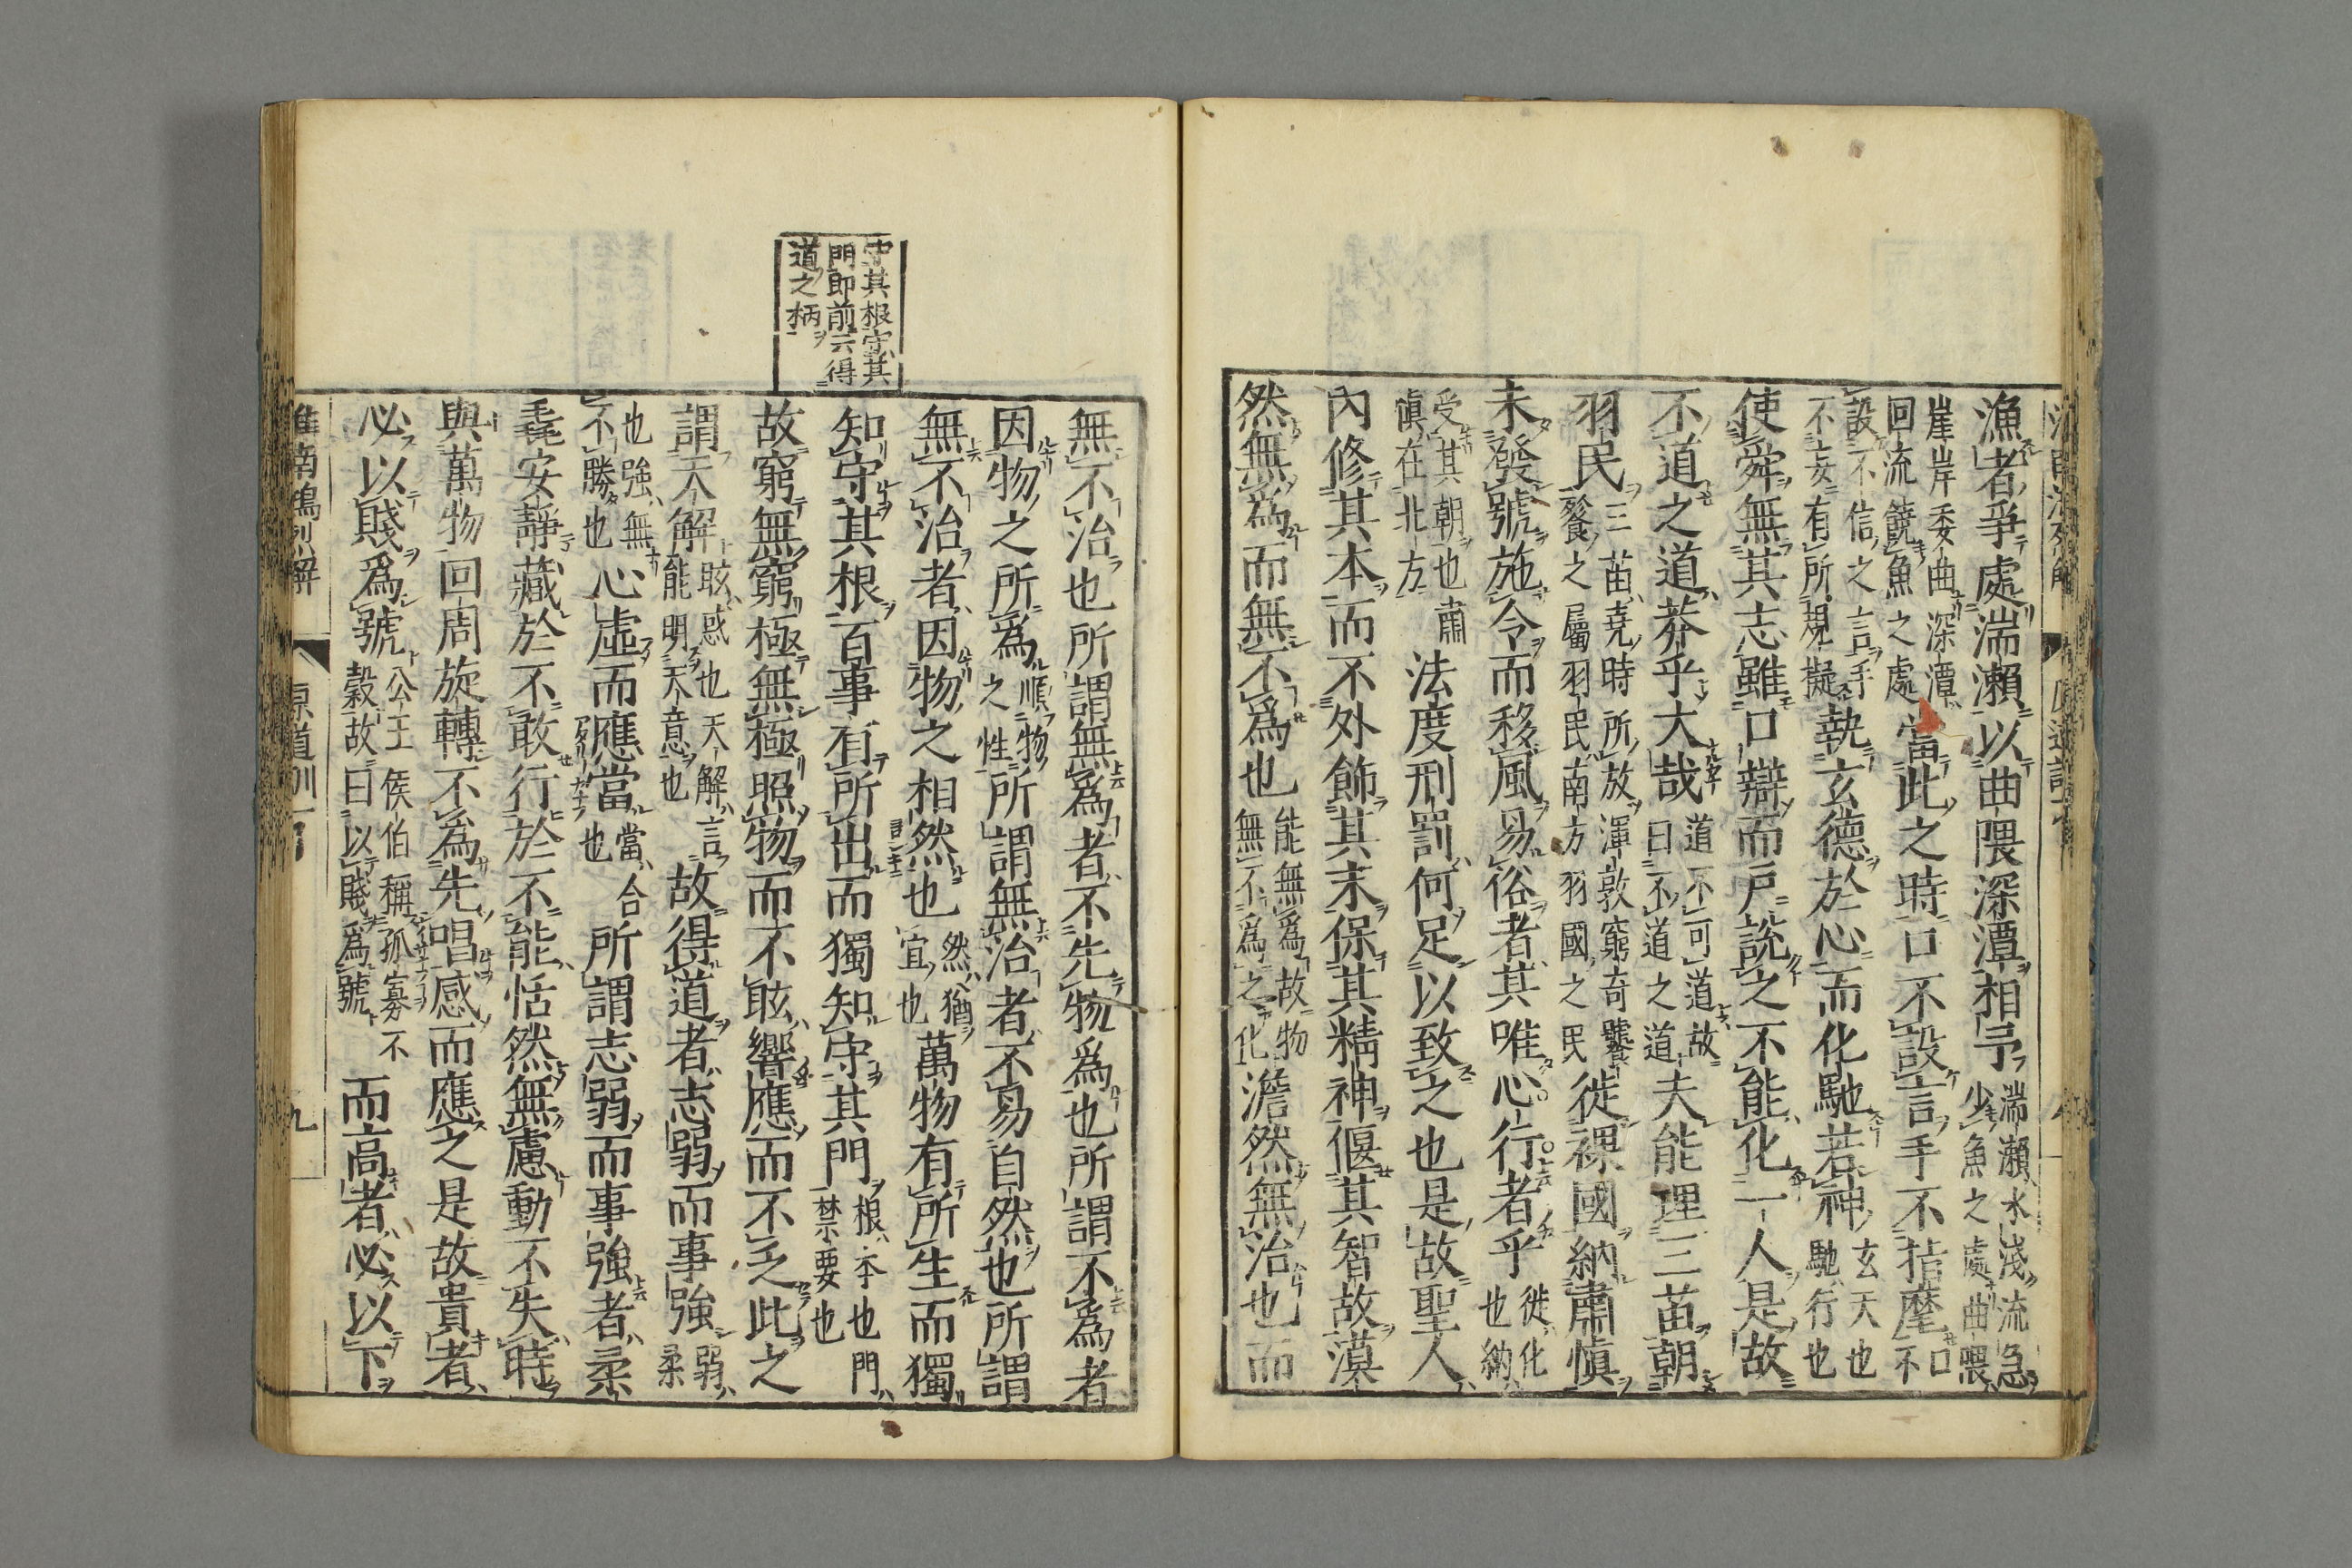 漁者爭處湍瀨以曲隈深潭相予湍瀨水淺流急少魚之處曲隈
崖岸委曲深潭回流饒魚之處當此之時口不設言手不指麾口不
設不信之言手不妄有所規擬執玄德於心而化馳若神玄天也馳行也
使舜無其志雖口辯而戸說之不能化一人是故
不道之道莽乎大哉道不可道故曰不道之道夫能理三苗朝
羽民三苗堯時所放渾敦窮奇饕餮之屬羽民南方羽國之民徙裸國納肅慎
未發號施令而移風易俗者其唯心行者乎徙化也納
受其朝也肅慎在北方法度刑罰何足以致之也是故聖人
內修其本而不外飾其末保其精神偃其智故漠
然無為而無不爲也能無爲故物無不爲之化澹然無治也而
無不治也所謂無爲者不先物爲也所謂不爲者
因物之所爲順物之性所謂無治者不易自然也所謂
無不治者因物之相然也然猶宜也萬物有所生而獨
知守其根百事有所出而獨知守其門根本也門禁要也
故窮無窮極無極照物而不眩響應而不乏此之
謂天解眩惑也天解言能明天意也故得道者志弱而事強弱柔
也強無不勝也心虛而應當當合也所謂志弱而事強者柔
毳安靜藏於不敢行於不能恬然無慮動不失時
與萬物回周旋轉不爲先唱感而應之是故貴者
必以賤爲號公王侯伯稱孤寡不穀故曰以賤爲號而高者必以下
守其根守其
門即前云得
道之柄
淮南鴻烈解
原道訓一
九